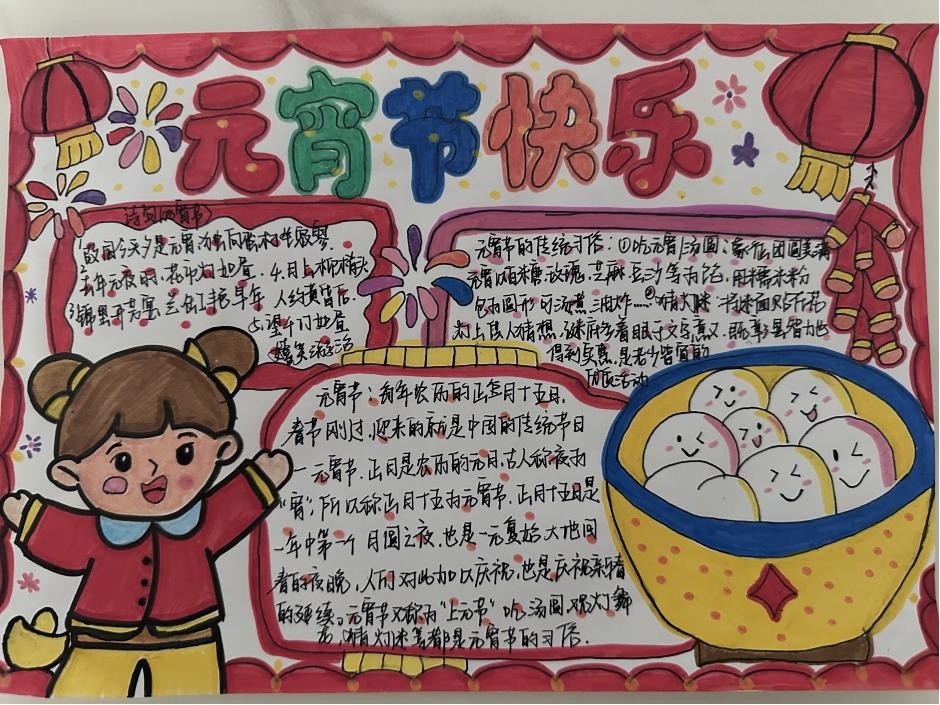 元宵节快乐
诗句元宵节
1故园今夕是元宵
2去年元夜时,花市灯如昼. 4.月上柳梢头
3锦里开芳宴 兰缸艳早年 人约黄昏后.
元宵节的传统习俗:①吃元宵/汤圆:象征团圆美满
元宵以白糖、玫瑰、芝麻、豆沙等为馅,用糯米粉
包为圆形可汤煮、油炸……②猜灯谜
灯上供人猜想,谜底多着眼于文字意义
得到奖赏,是老少皆宜的
节庆活动
元宵节:每年农历的正月十五日,
春节刚过,迎来的就是中国的传统节日
一元宵节.正月是农历的元月,古人称夜为
“宵”,所以称正月十五为元宵节.正月十五日是
一年中第一个月圆之夜,也是一元复始,大地回
春的夜晚,人们对此加以庆祝,也是庆祝新春
的延续。元宵节又称为“上元节”吃汤圆,观灯舞
龙,猜灯谜等都是元宵节的习俗.